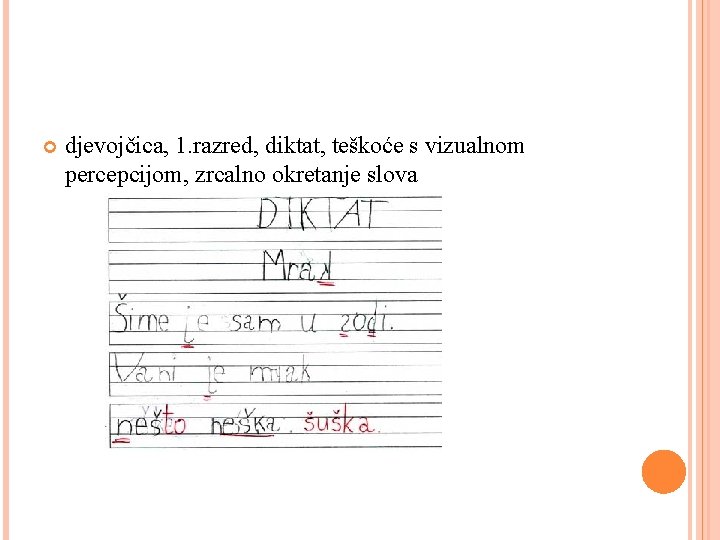 djevojčica, 1.razred, diktat, teškoće s vizualnom
percepcijom, zrcalno okretanje slova
DIKTAT
Mrak
Šime je sam u zodi.
Vani je mrak
nešto neška šuška.